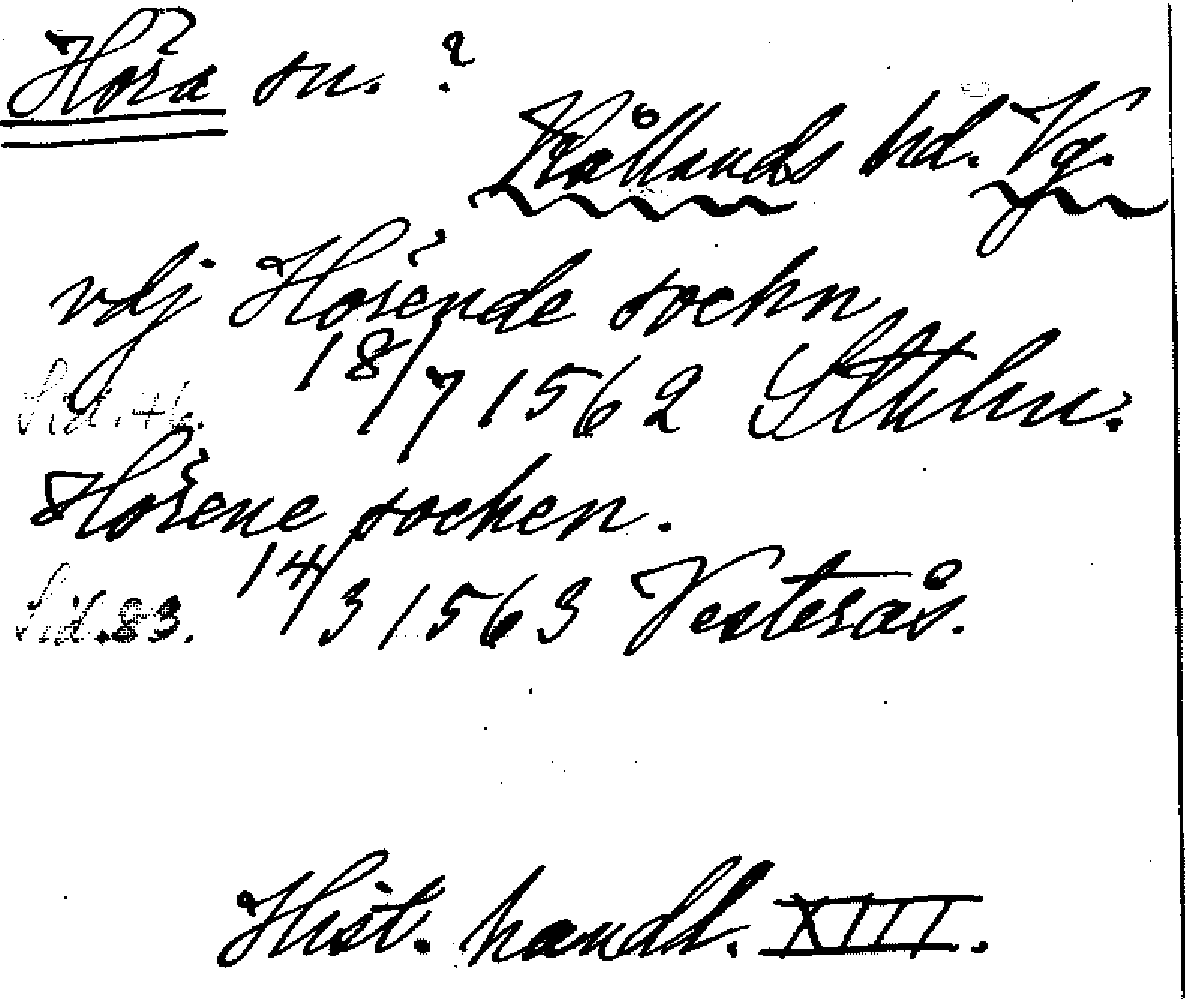 Höra sn. ?
Kållands hd. Vg.
vdj Hörende sochn
Sid. 18/7 1562 Sthlm.
Hörene socken.
Sid. 83. 14/3 1563 Vesterås.
Hist. handl. XIII.